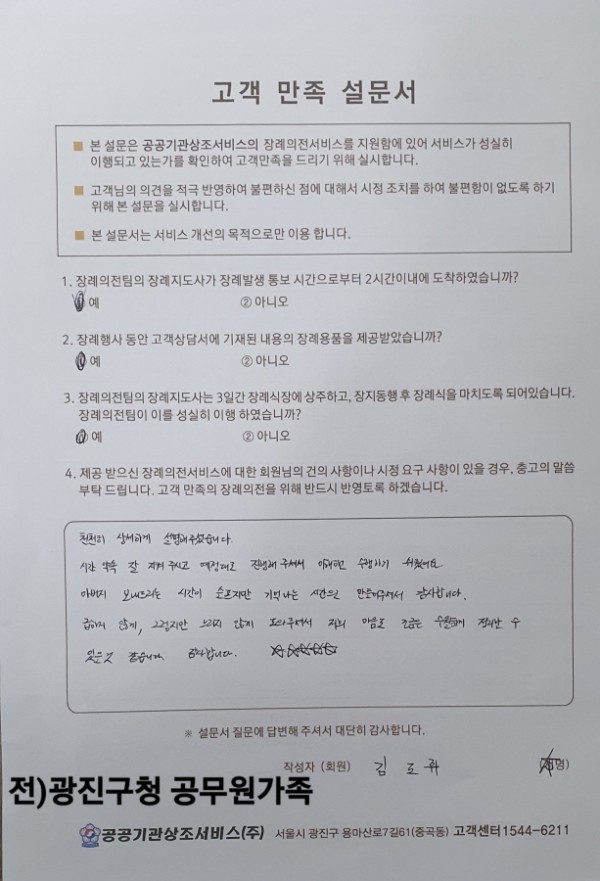 고객 만족 설문서
■ 본 설문은 공공기관상조서비스의 장례의전서비스를 지원함에 있어 서비스가 성실히
이행되고 있는가를 확인하여 고객만족을 드리기 위해 실시합니다.
■ 고객님의 의견을 적극 반영하여 불편하신 점에 대해서 시정 조치를 하여 불편함이 없도록 하기
위해 본 설문을 실시합니다.
■ 본 설문서는 서비스 개선의 목적으로만 이용 합니다.
1. 장례의전팀의 장례지도사가 장례발생 통보 시간으로부터 2시간이내에 도착하였습니까?
예 ② 아니오
2. 장례행사 동안 고객상담서에 기재된 내용의 장례용품을 제공받았습니까?
예 ② 아니오
3. 장례의전팀의 장례지도사는 3일간 장례식장에 상주하고, 장지동행 후 장례식을 마치도록 되어있습니다.
장례의전팀이 이를 성실히 이행 하였습니까?
예 ② 아니오
4. 제공 받으신 장례의전서비스에 대한 회원님의 건의 사항이나 시정 요구 사항이 있을 경우, 충고의 말씀
부탁 드립니다. 고객 만족의 장례의전을 위해 반드시 반영토록 하겠습니다.
천천히 상세하게 설명해주셨습니다.
시간 약속 잘 지켜 주시고 예정대로 진행해 주셔서 수행하기 쉬웠어요
아버지 보내드리는 시간이 슬프지만 기억나는 시간으로 만들어주셔서 감사합니다.
급하지 않게, 그렇지만 느리지 않게 도와주셔서 저희 마음도 조금은 수월하게 정리할 수
있는것 같습니다. 감사합니다. ☆☆☆☆☆
※ 설문서 질문에 답변해 주셔서 대단히 감사합니다.
작성자 (회원) 김 도 명)
전)광진구청 공무원가족
공공기관상조서비스(주) 서울시 광진구 용마산로7길61(중곡동) 고객센터1544-6211